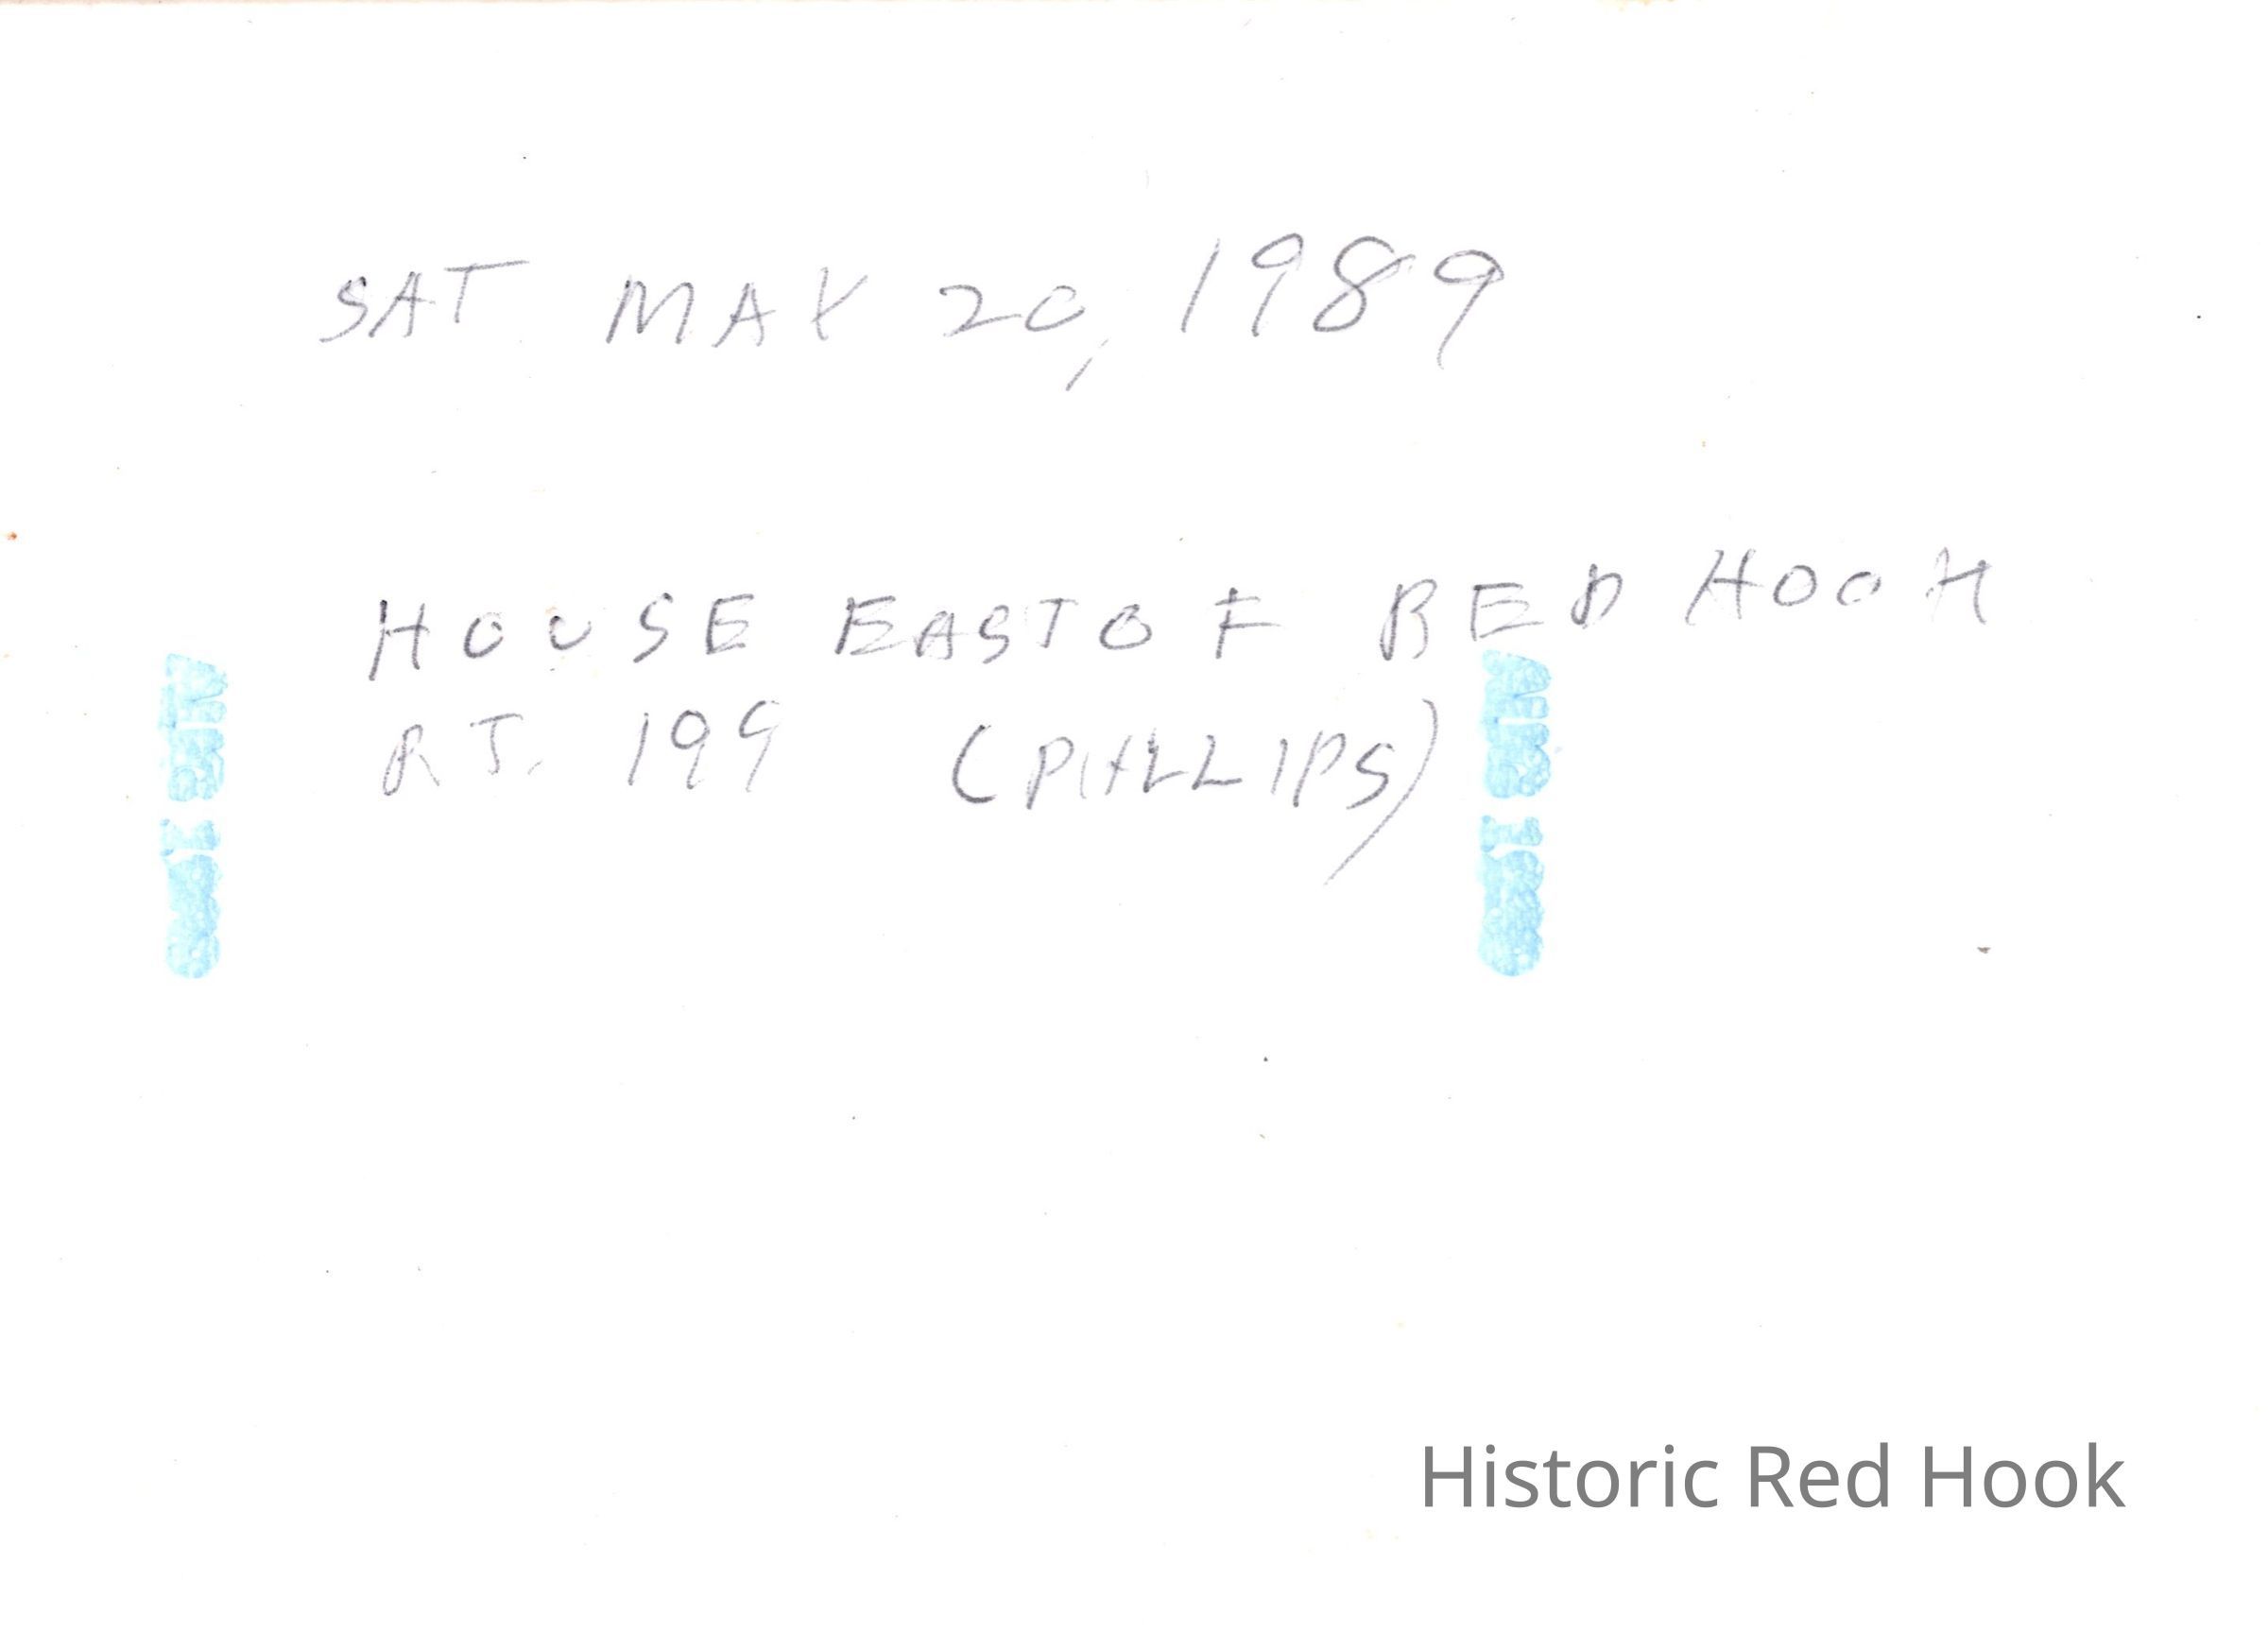 SAT MAY 20, 1989
HOUSE EAST OF RED HOOK
RT. 199 (PHILLIPS)
Historic Red Hook